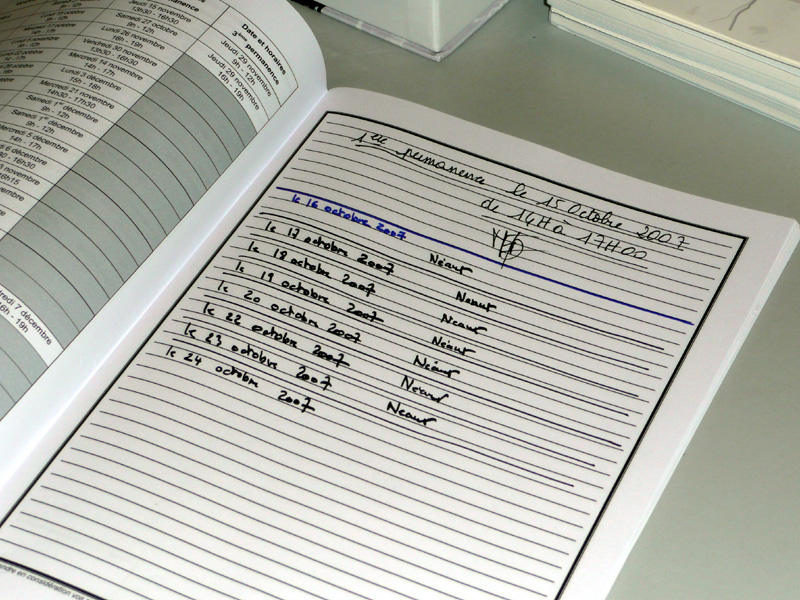 Jeudi 15 novembre
13h30 - 16h30
Samedi 27 octobre
9h - 12h
Lundi 26 novembre
16h - 19h
Vendredi 30 novembre
13h30 - 16h30
Mercredi 14 novembre
14h - 17h
Lundi 3 décembre
15h - 18h
Mercredi 21 novembre
14h30 - 17h30
Samedi 1er décembre
9h - 12h
Samedi 1er décembre
9h - 12h
Mercredi 5 décembre
14h - 17h
6 décembre
- 16h30
novembre
Date et horaires
3ème permanence
Jeudi 29 novembre
9h - 12h
Jeudi 29 novembre
16h - 19h
7 décembre
16h - 19h
1ere permanence le 15 Octobre 2007
de 14H à 17H00
le 16 octobre 2007 Néant
le 17 octobre 2007 Néant
le 18 octobre 2007 Néant
le 19 octobre 2007 Néant
le 20 octobre 2007 Néant
le 22 octobre 2007 Néant
le 23 octobre 2007 Néant
le 24 octobre 2007
en considération